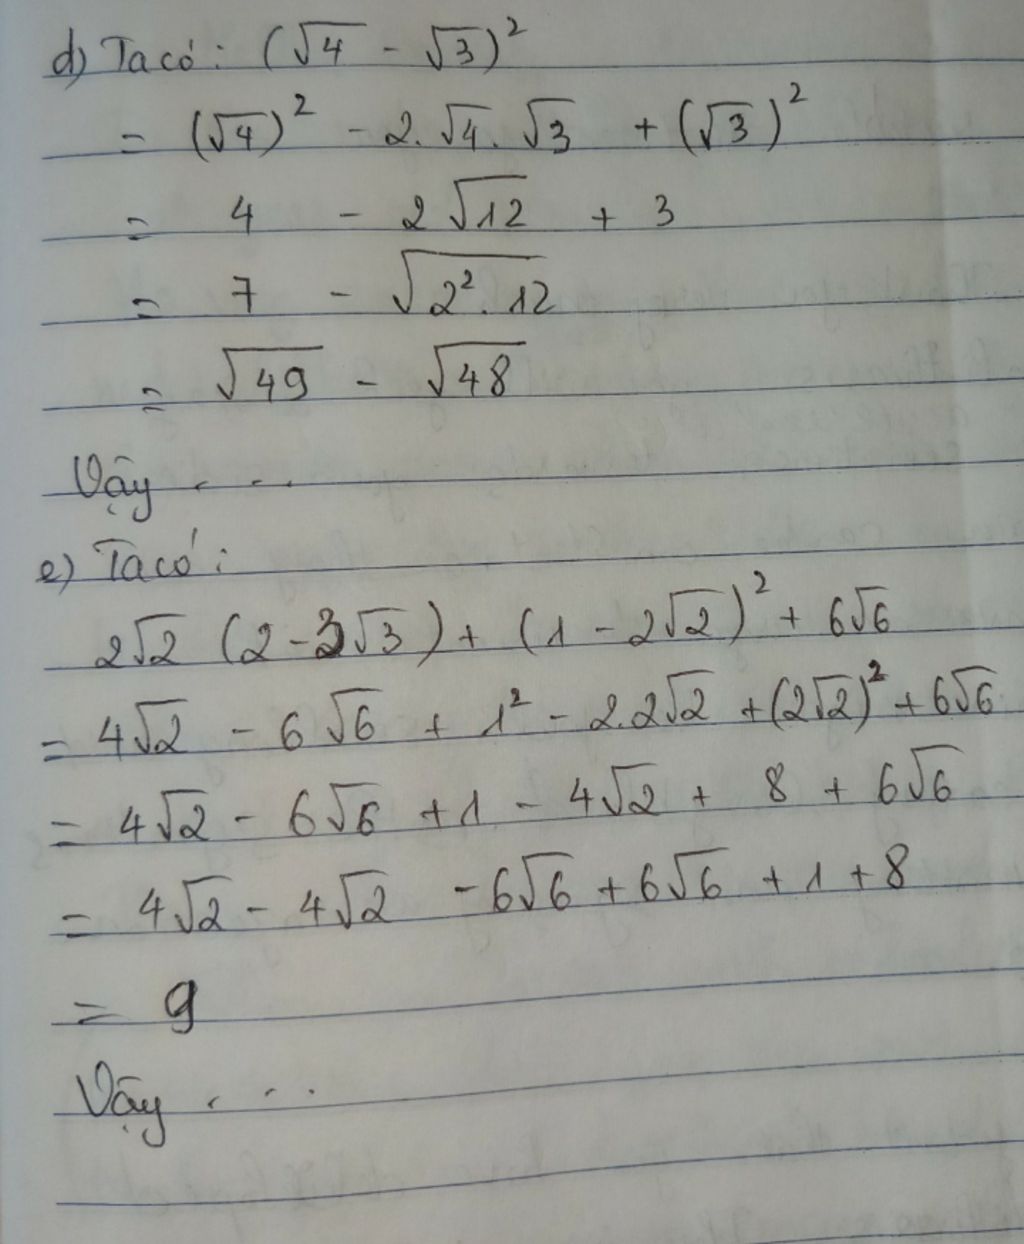 d) Ta có: (√4 - √3)²
= (√4)² - 2.√4.√3 + (√3)²
= 4 - 2√12 + 3
= 7 - √(2².12)
= √49 - √48
Vậy ...
e) Ta có:
2√2 (2 - 3√3) + (1 - 2√2)² + 6√6
= 4√2 - 6√6 + 1² - 2.2√2 + (2√2)² + 6√6
= 4√2 - 6√6 + 1 - 4√2 + 8 + 6√6
= 4√2 - 4√2 - 6√6 + 6√6 + 1 + 8
= 9
Vậy ...